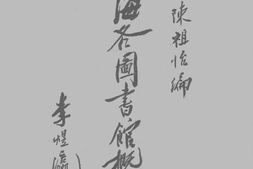 陳祖怡編
海各圖書館概
李煜瀛